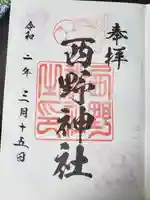 奉拝
西野神社
令和二年三月十五日